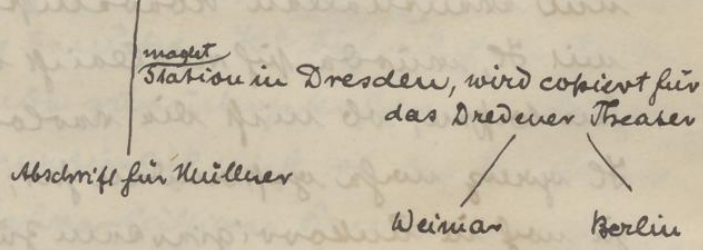 macht
Station in Dresden, wird copiert für
das Dredener Theater
Abschrift für Müllner
Weimar Berlin